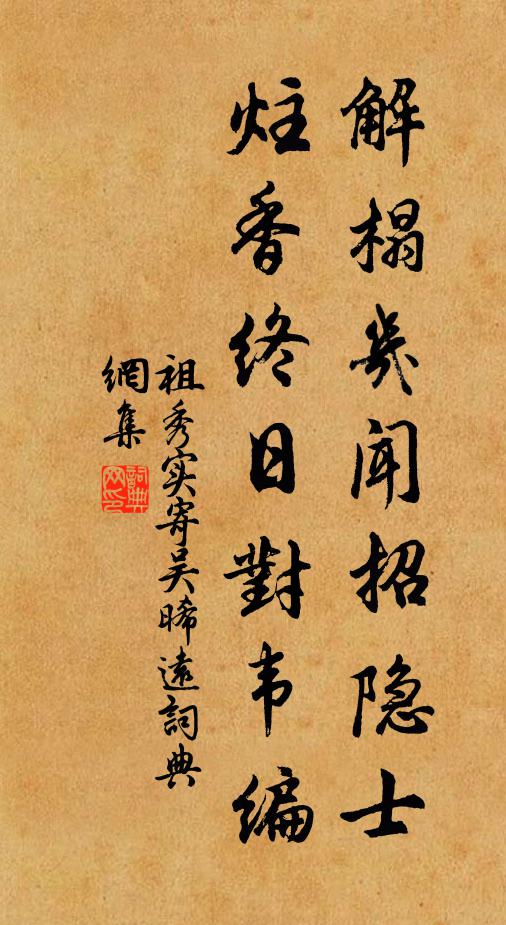 解榻幾闻招隐士
炷香终日對韦编
祖秀实寄吴晞遠詞典
網集
詞典
网印